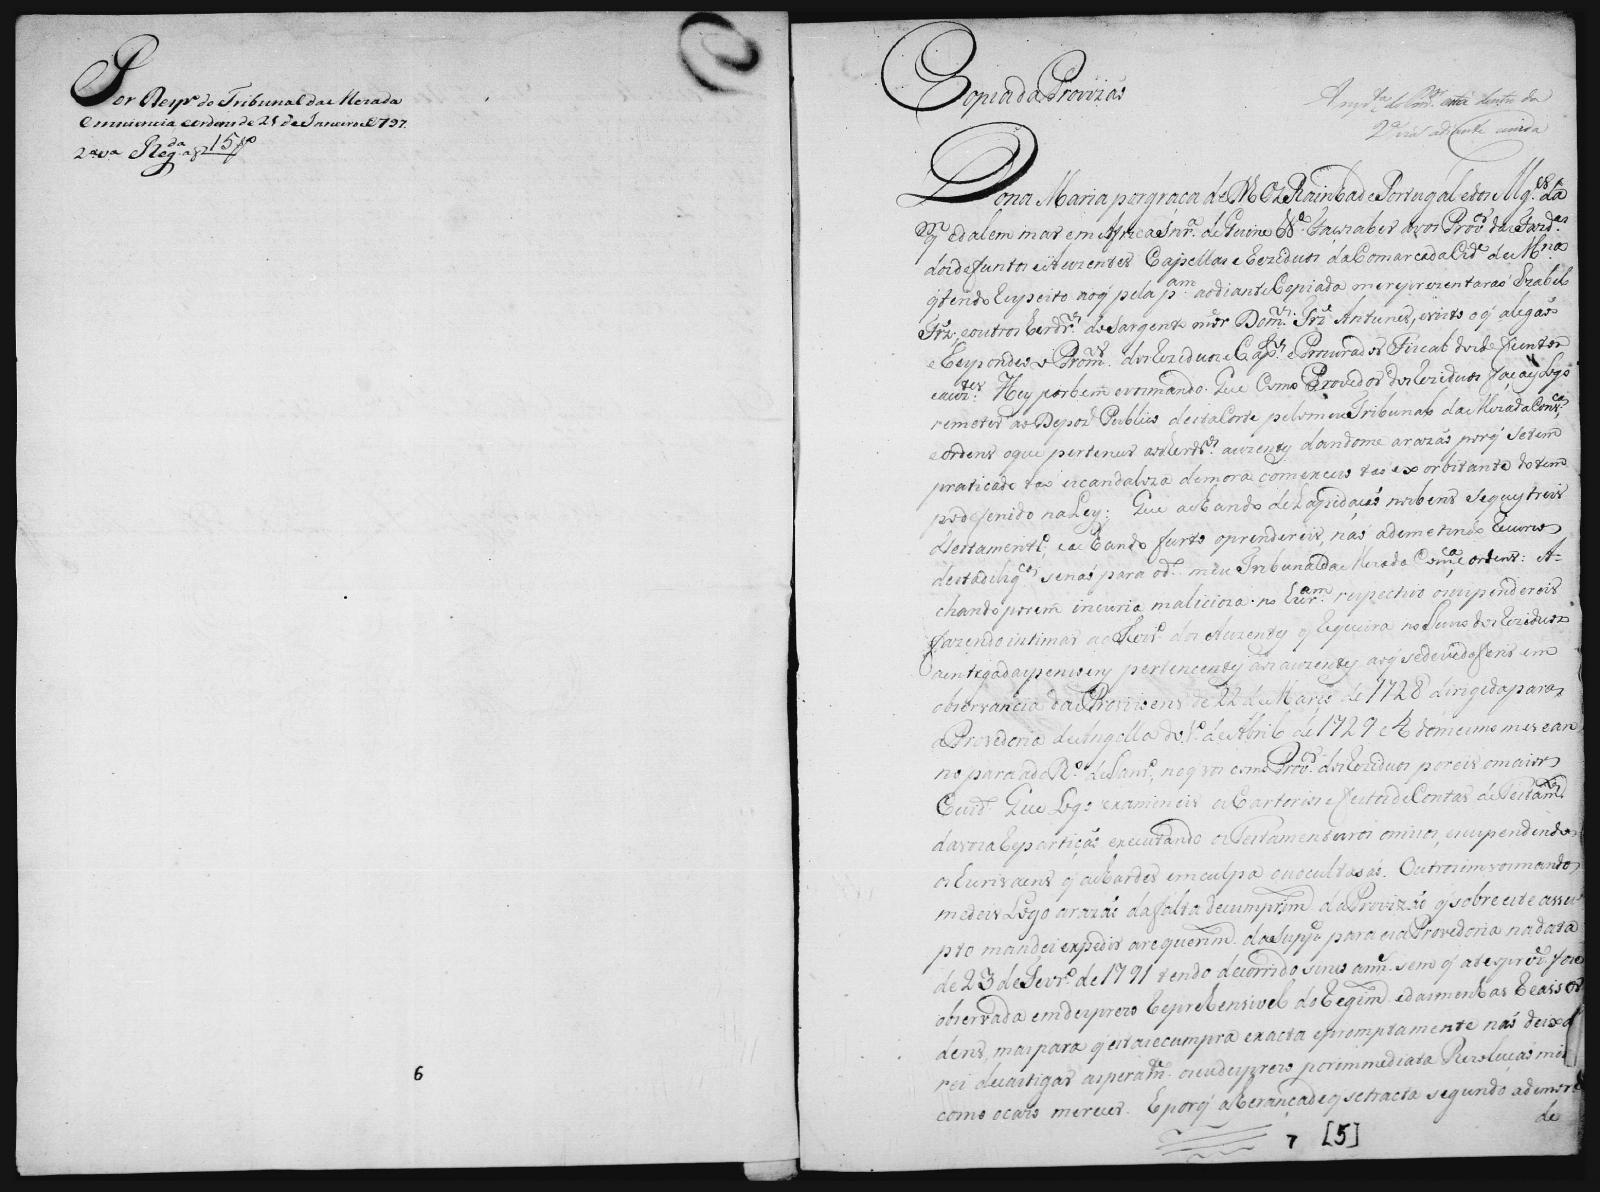 Por Rezm. do Tribunal da Meza da
Consciencia e ordens de 21 de Janeiro de 1797.
2.ª via Reg.da a f 15
Copia da Provizaõ
2.ª via adiante unida
Dona Maria por graça de Ds Rainha de Portugal e dos Alg.es da
qm e dalem mar em Africa Snr.ª de Guine &ª. Faço saber a vos Prov.or da Fazd.ª
dos defuntos e Auzentes Capellas e Reziduos da Comarca da Cid.e de M.na
q' tendo respeito ao q' pela p.am ao diante Copiada me reprezentaraõ Izabel
Frz, e outros herdr.os do Sargento mór Dom.os Frz Antunes, visto o q' alegaõ
e respondeo o Prom.or dos Reziduos e Cap.as e Procurador Fiscal dos defuntos
e auz.tes Hey por bem e vos mando. Que Como Provedor dos Reziduos façaes logo
remeter ao Depoz.º Publico desta Corte pelo meu Tribunal da Meza da Cons.ca
e ordens o que pertencer aos herdr.os auzentes dandome a razaõ porq' se tem
praticado taõ escandaloza demora com excesso taõ exorbitante do tem
po defenido na Ley: Que achando delapidaçaõ nos bens sequestreis
o testament.º, e achando furto o prendereis, naõ ademetindo recurso
desta delig.ca senaõ para o d.º meu Tribunal da Meza da Cons.ca e ordens: A-
chando porem incuria malicioza no Escr.am respectivo o suspendereis
fazendo intimar ao Thezr.º dos Auzentes q' requeira no Juizo dos Reziduos
a entrega das pensoens pertencentes aos auzentes ao q' se deve deferir em
observancia das Provizoens de 22 de Março de 1728 dirigida para
a Provedoria de Angolla do 1.º de Abril de 1729 e 4 do mesmo mes e an
no para a do R.º de Jan.º, no q' vos como Prov.or dos Reziduos poreis o maior
Cuid.º Que logo examineis os Cartorios e feitos de Contas de Testam.tos
da vossa repartiçaõ executando os Testamenteiros omissos, e suspendendo
os Escrivaens q' achardes em culpa ou ocultaçaõ. Outrosim vos mando
me deis logo a razaõ da falta de cumprim.to da Provizaõ q' sobre este assu
pto mandei expedir a requerim.to da Supp.e para essa Provedoria na data
de 23 de Fevr.º de 1791 tendo decorrido sinco ann.s sem q' ate o prez.e fose
observada em desprezo reprehensivel do regim.to e das minhas reais or
dens, mas para q' esta se cumpra exacta e promptamente naõ deixa
rei de castigar asperam.te o seu desprezo por immediata Rezoluçaõ mi
como o cazo merecer. E porq' a herança de q' se tracta segundo a demora
de
6
7 [5]